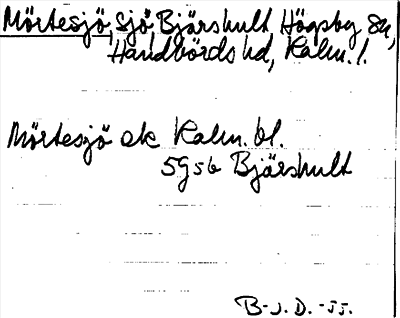 Mörtesjö, sjö, Bjärshult Högsby sn,
Handbörds hd, Kalm. l.
Mörtesjö ek Kalm. bl.
5G5b Bjärshult
B-J. D. -55.